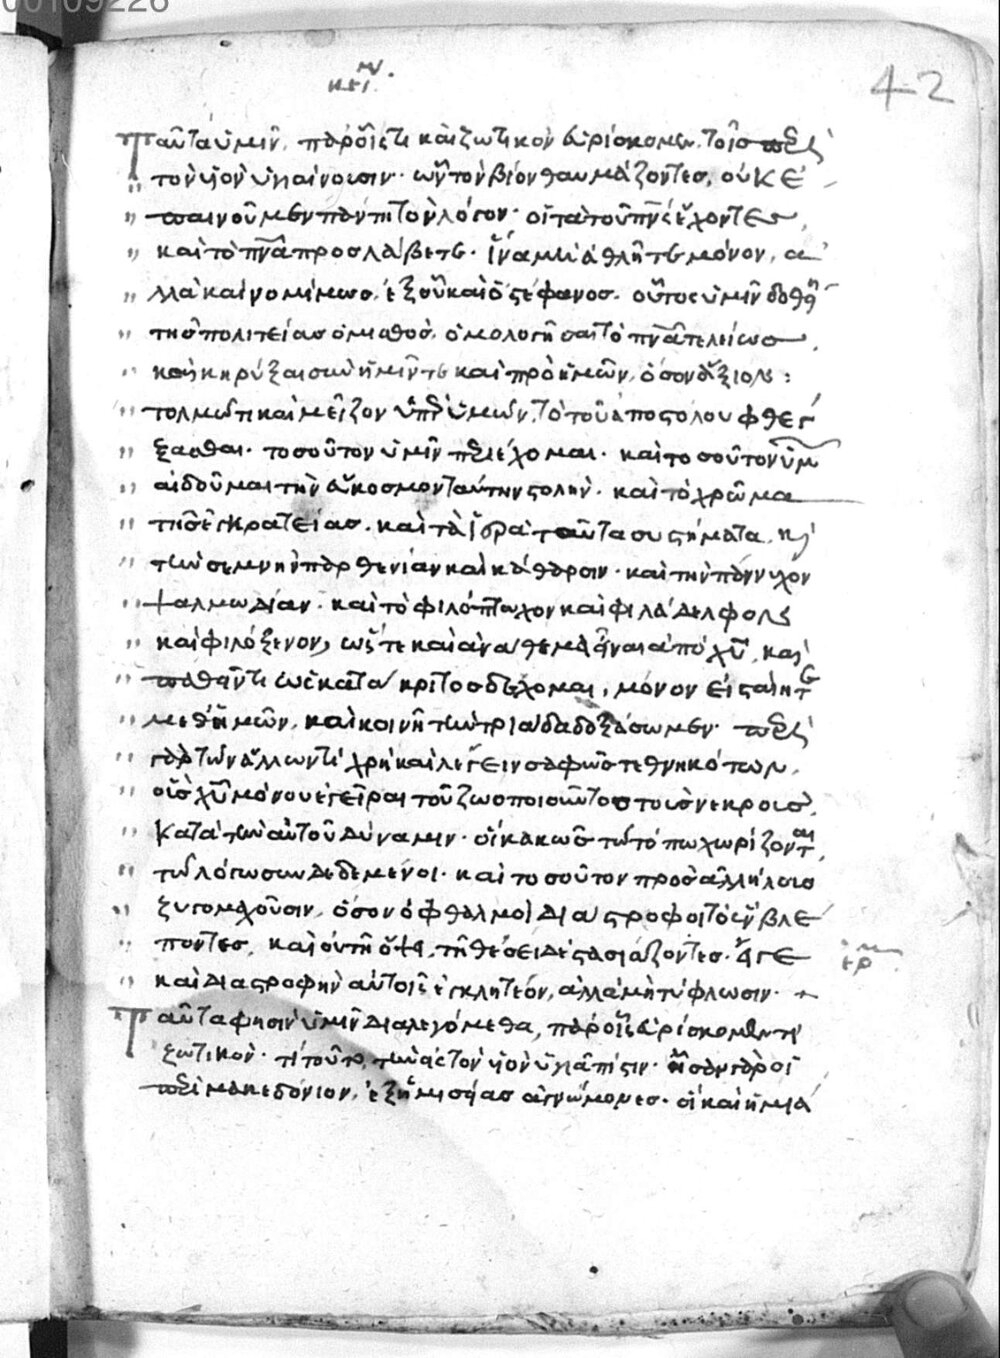 00109226
42
κείμ.
Ταῦτα ὑμῖν, παρ' οἷς τι καὶ ζωτικὸν εὑρίσκομεν, τοῖς περὶ
τὸν υἱὸν ὑγιαίνουσιν· ὧν τὸν βίον θαυμάζοντες, οὐκ ἐ
παινοῦμεν πάντη τὸν λόγον· οἱ τὰ τοῦ πνς ἔχοντες,
καὶ τὸ πνα προσλάβετε· ἵνα μὴ ἀθλῆτε μόνον, ἀ
λλὰ καὶ νομίμως, ἐξ οὗ καὶ ὁ στέφανος. οὗτος ὑμῖν δοθείη
τῆς πολιτείας ὁ μισθός, ὁμολογῆσαι τὸ πνα τελείως,
καὶ κηρύξαι σὺν ἡμῖν τε καὶ πρὸ ἡμῶν, ὅσον ἄξιον:
τολμῶ τι καὶ μεῖζον ὑπὲρ ὑμῶν, τὸ τοῦ ἀποστόλου φθέγ
ξασθαι· τοσοῦτον ὑμῶν περιέχομαι· καὶ τοσοῦτον ὑμῶν
αἰδοῦμαι τὴν εὔκοσμον ταύτην στολήν· καὶ τὸ χρῶμα
τῆς ἐγκρατείας· καὶ τὰ ἱερὰ ταῦτα συστήματα, καὶ
τὴν σεμνὴν παρθενίαν καὶ κάθαρσιν· καὶ τὴν πάννυχον
ψαλμωδίαν· καὶ τὸ φιλόπτωχον καὶ φιλάδελφον
καὶ φιλόξενον, ὥστε καὶ ἀνάθεμα εἶναι ἀπὸ χυ, καὶ
παθεῖν τι ὡς κατάκριτος δέχομαι, μόνον εἰ σταίητε
μεθ' ἡμῶν, καὶ κοινῆ τὴν τριάδα δοξάσωμεν· περὶ
γὰρ τῶν ἄλλων τί χρὴ καὶ λέγειν σαφῶς τεθνηκότων,
οὓς χυ μόνου ἐγεῖραι τοῦ ζωοποιοῦντος τοὺς νεκροὺς,
κατὰ τὴν αὐτοῦ δύναμιν· οἳ κακῶς τῶ τόπω χωρίζονται,
τῶ λόγω συνδεδεμένοι· καὶ τοσοῦτον πρὸς ἀλλήλους
ζυγομαχοῦσιν, ὅσον ὀφθαλμοὶ διάστροφοι τὸ ἓν βλέ
ποντες, καὶ οὐ τῆ ὄψει, τῆ θέσει δὲ στασιάζοντες· εἴγε
καὶ διαστροφὴν αὐτοῖς ἐγκλητέον, ἀλλὰ μὴ τύφλωσιν·
ἑρμ
Ταῦτα φησὶν ὑμῖν διαλεγόμεθα, παρ' οἷς εὑρίσκομέν τι
ζωτικόν· τί τοῦτο, τὴν εἰς τὸν υἱὸν ὑγιᾶ πίστιν· ἦσαν γὰρ οἱ
περὶ μακεδόνιον, ἐξ ἡμισείας ἀγνώμονες· οἱ καὶ ἡμιά